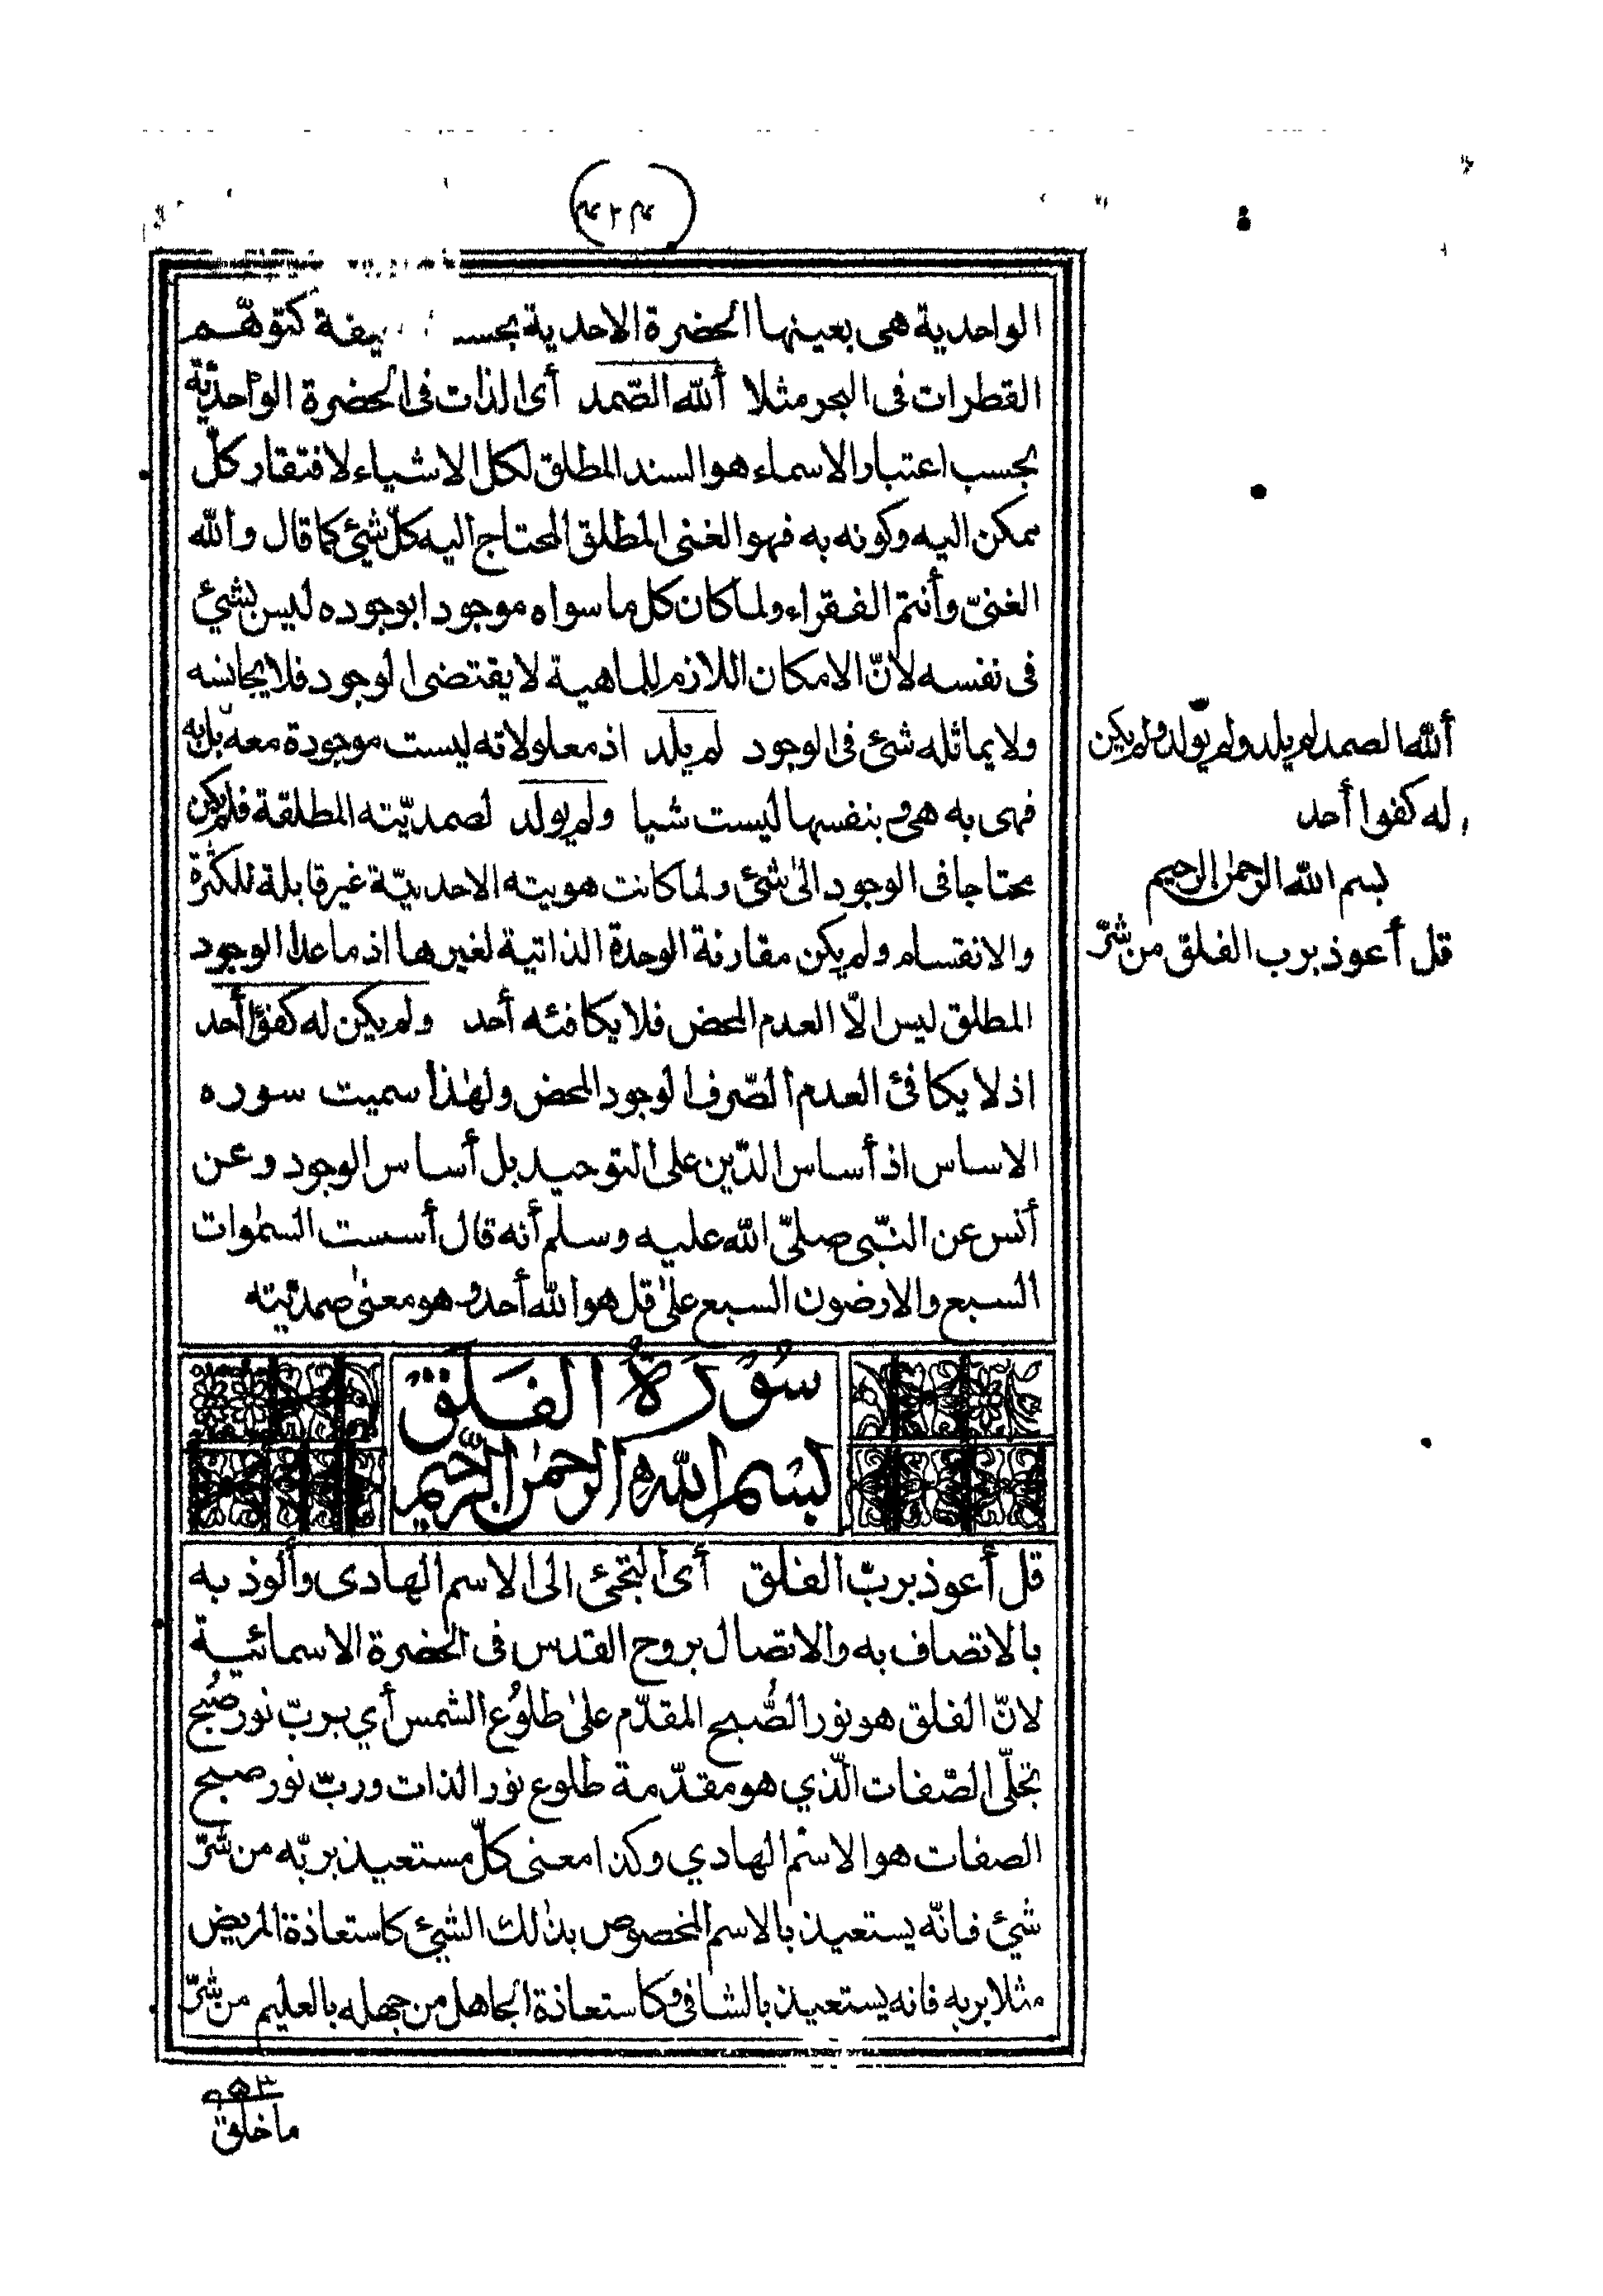 الواحدية هى بعينها الحضرة الاحدية بحسب كتوهّم
القطرات فى البحر مثلا أللّه الصّمد أى الذات فى الحضرة الواحديّة
بحسب اعتبار الاسماء هو السند المطلق لكل الاشياء لافتقار كلّ
ممكن اليه وكونه به فهو الغنى المطلق المحتاج اليه كلّ شيئ كما قال وأللّه
الغنىّ وأنتم الفقراء ولما كان كل ما سواه موجودا بوجوده ليس بشيئ
فى نفسه لانّ الامكان اللازم للماهية لا يقتضى الوجود فلا يجانسه
ولا يماثله شئ فى الوجود لم يلد اذ معلولاته ليست موجودة معه بل به
فهى به هى و بنفسها ليست شيا ولم يولد لصمديّته المطلقة فلم يكن
محتاجا فى الوجود الى شئ ولما كانت هويته الاحديّة غير قابلة للكثرة
والانقسام ولم يكن مقارنة الوحدة الذاتية لغيرها اذ ما عدا الوجود
المطلق ليس الّا العدم المحض فلا يكافئه أحد ولم يكن له كفؤا أحد
اذ لا يكافئ العدم الصّرف الوجود المحض ولهذا سميت سوره
الاساس اذ أساس الدّين على التوحيد بل أساس الوجود وعن
أنس عن النّبى صلىّ اللّه عليه وسلم أنه قال أسست السموات
السبع والارضون السبع على قل هو اللّه أحد و هو معنى صمديّته
أللّه الصمد لم يلد ولم يولد ولم يكن
له كفوا أحد
بسم اللّه الرحمن الرحيم
قل أعوذ برب الفلق من شرّ
سُوْرَةُ الفَلَق
بسم اللّه الرحمن الرّحيم
قل أعوذ بربّ الفلق أى التجئ الى الاسم الهادى وألوذ به
بالاتصاف به والاتصال بروح القدس فى الحضرة الاسمائية
لانّ الفلق هو نور الصُّبح المقدّم على طلوُع الشمس أي بربّ نور صُبح
تجلّى الصّفات الّذي هو مقدّمة طلوع نور الذات وربّ نور صبح
الصفات هو الاسْم الهادي وكذا معنى كلّ مستعيذ بربّه من شرّ
شيئ فانّه يستعيذ بالاسم المخصوص بذلك الشيئ كاستعاذة المريض
مثلا بربه فانه يستعيذ بالشافى وكاستعاذة الجاهل من جهله بالعليم من شرّ
ما خلق